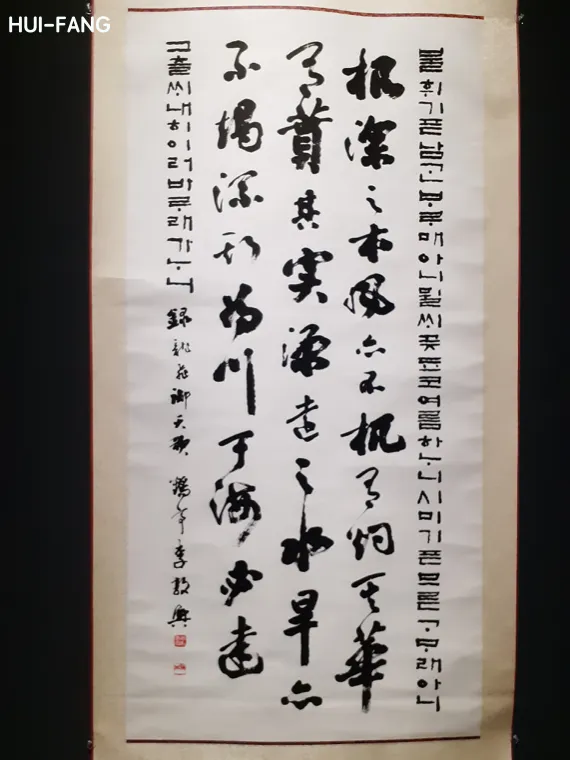 HUI-FANG
불휘기픈남ᄀᆞᆫᄇᆞᄅᆞ매아니뮐ᄊᆡ곶됴코여름하ᄂᆞ니ᄉᆡ미기픈므른ᄀᆞᄆᆞ래아니
根深之木風亦不扤有灼其華
有蕡其實源遠之水旱亦
不竭流斯為川于海必達
그츨ᄊᆡ내히이러바ᄅᆞ래가ᄂᆞ니 錄龍飛御天歌 鶴亭李敦興